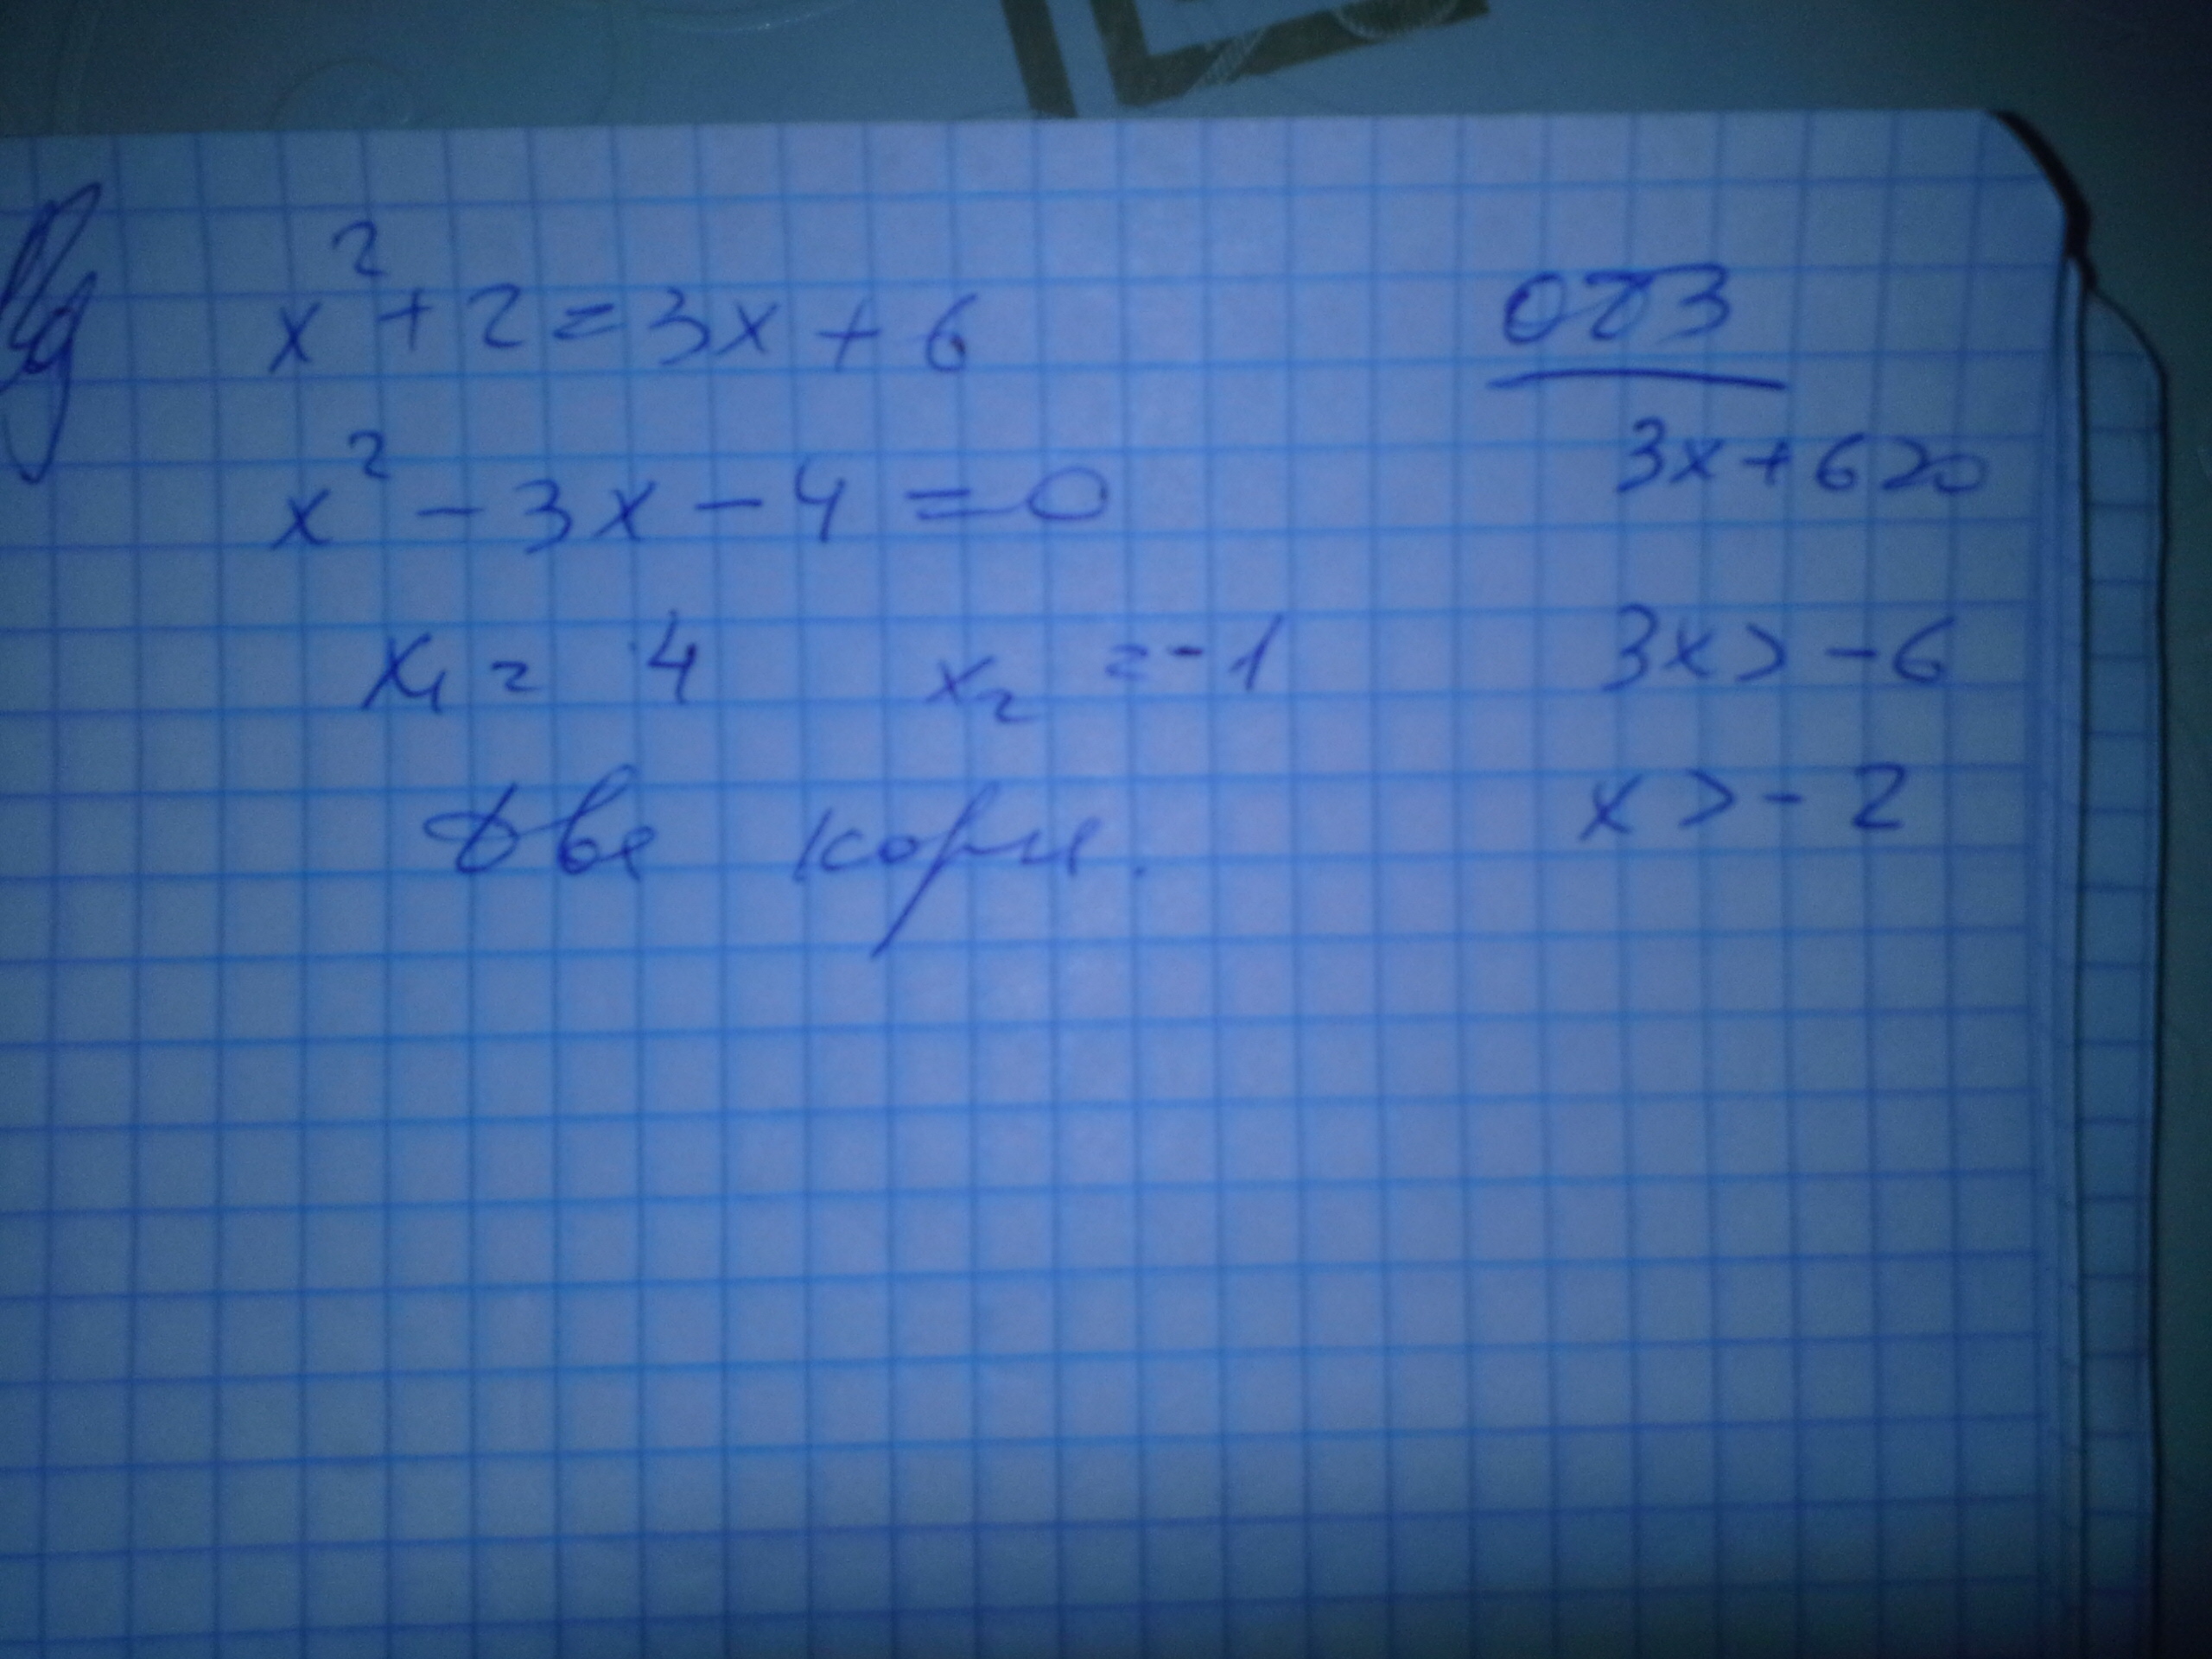 x² + 2 = 3x + 6
x² - 3x - 4 = 0
x₁ = 4 x₂ = -1
две корн.
ОДЗ
3x + 6 > 0
3x > -6
x > -2